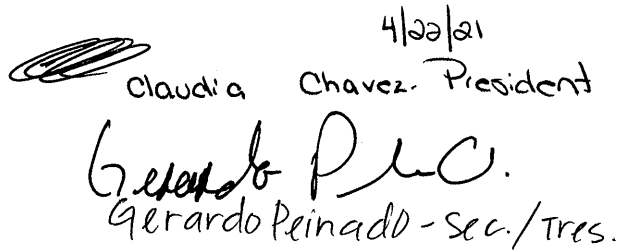 4/22/21
Claudia Chavez. President
Gerardo P
Gerardo Peinado - Sec./Tres.